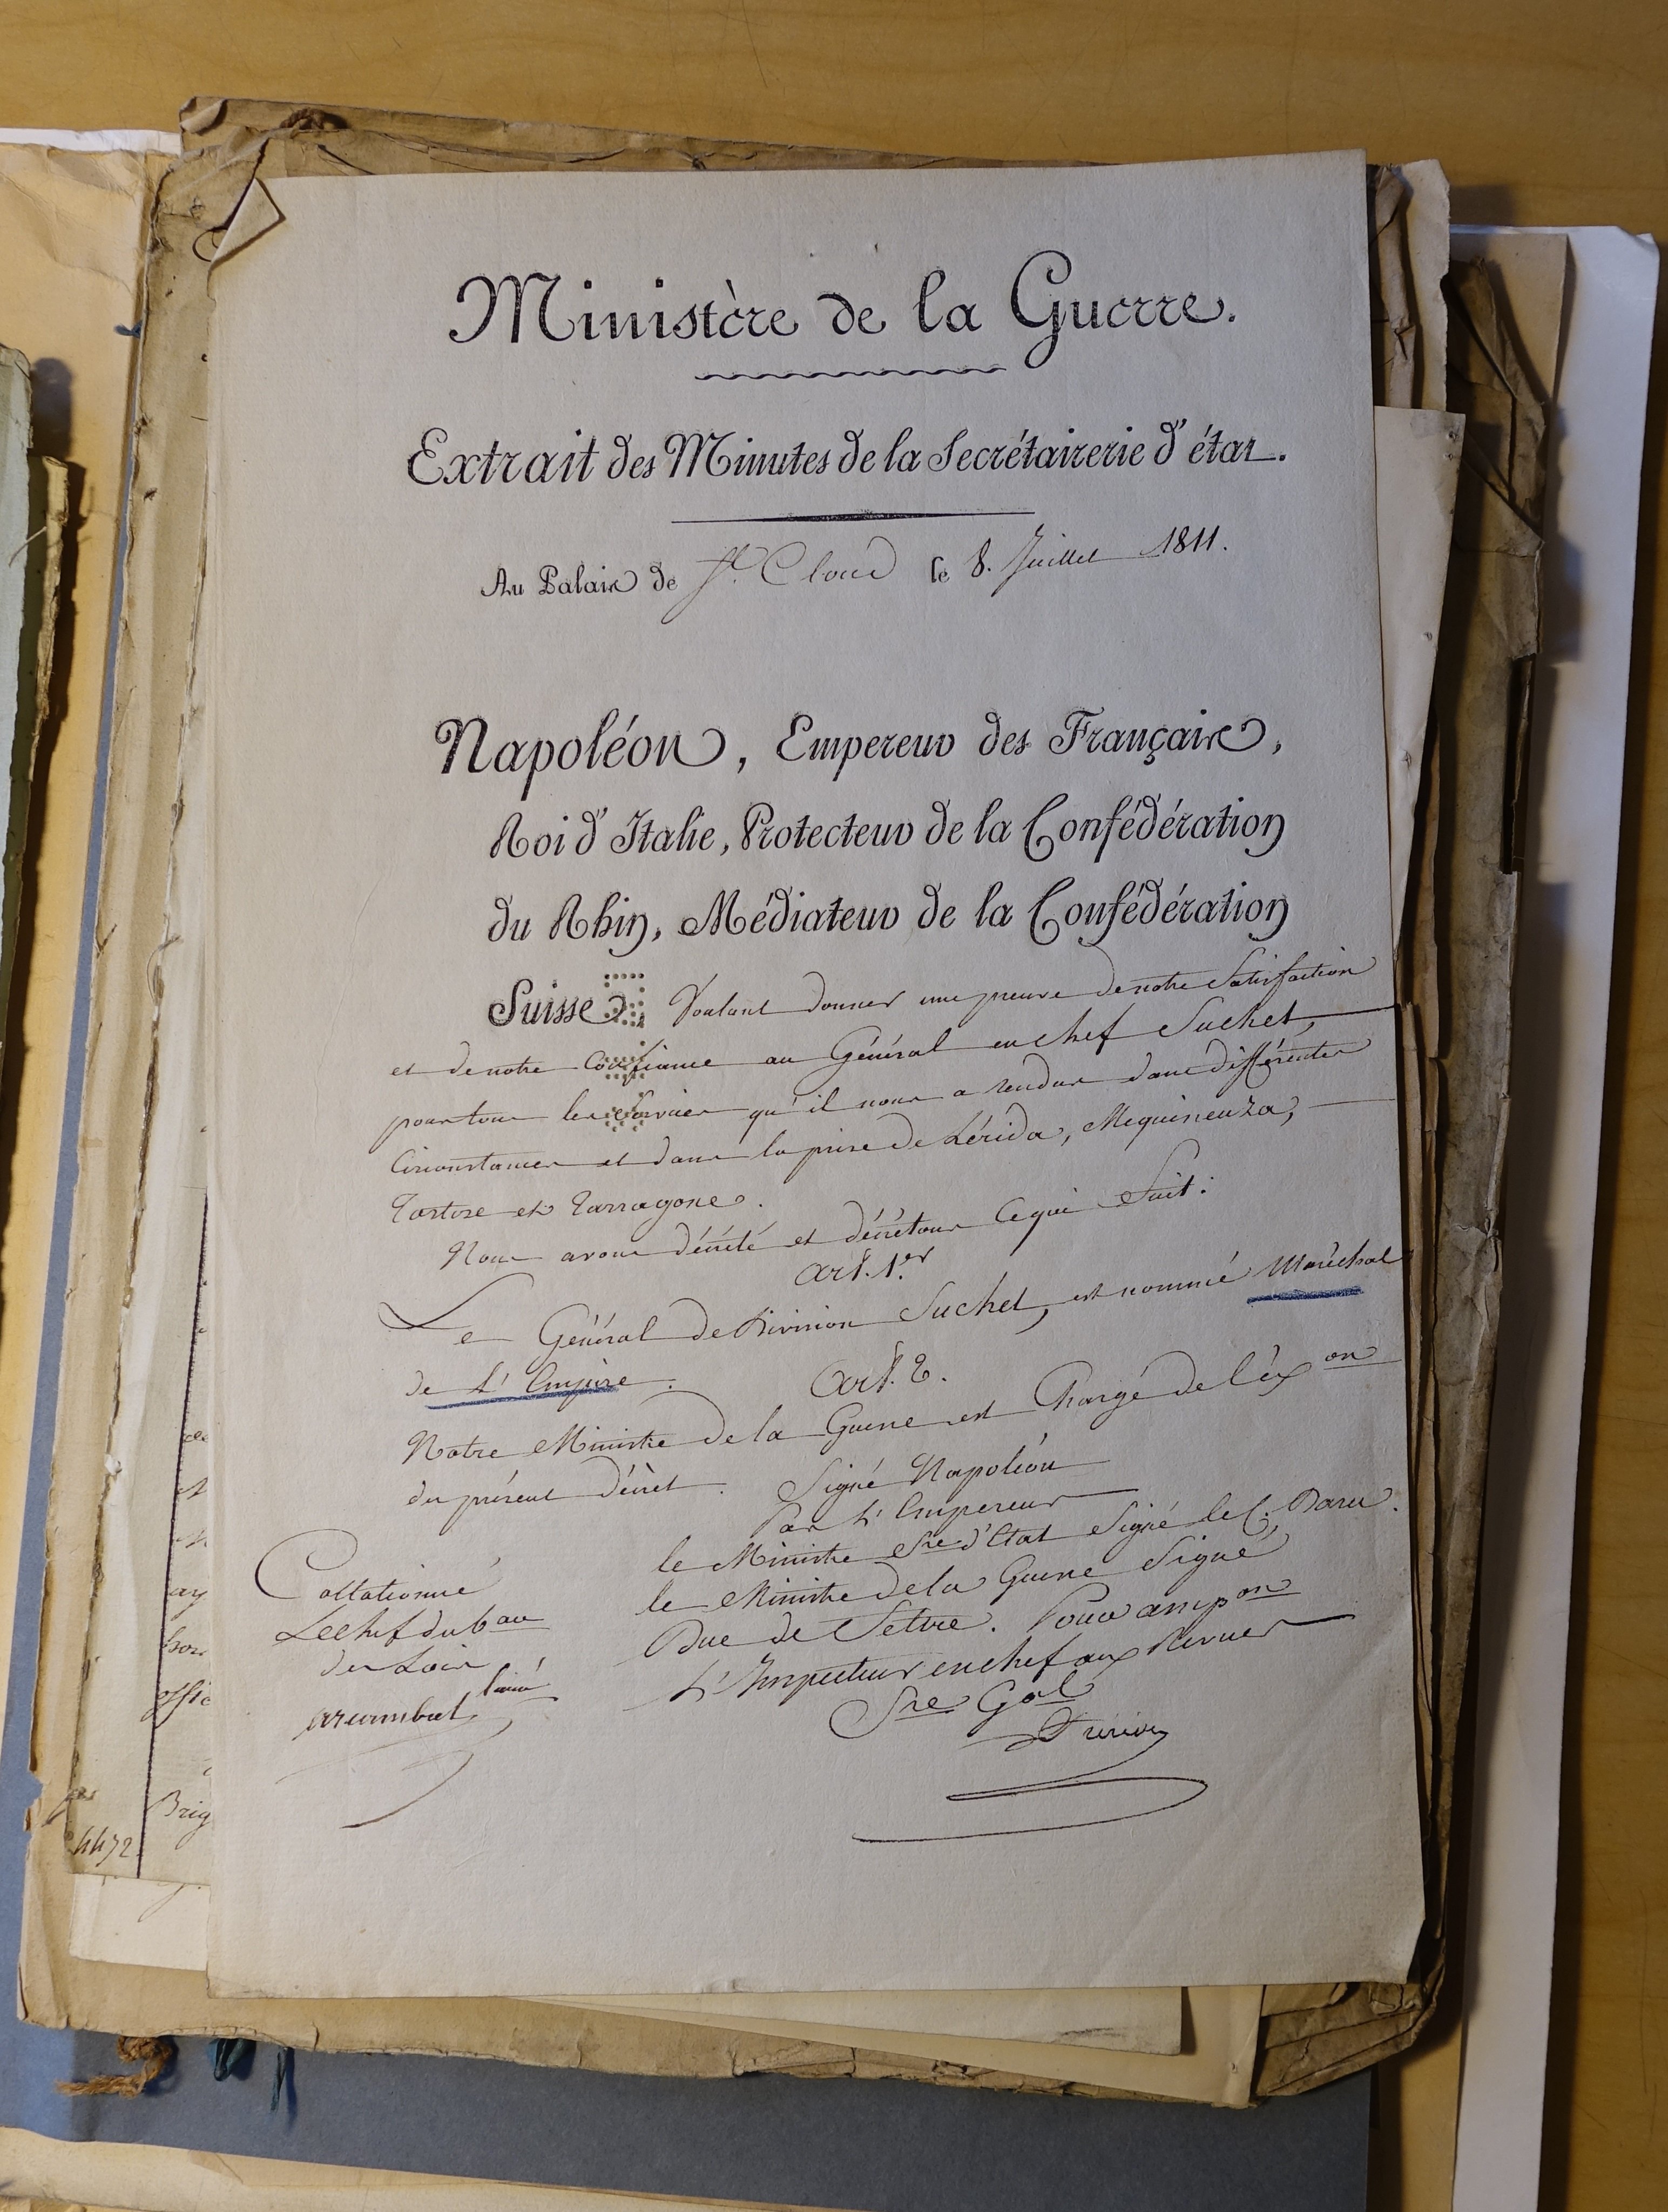 Ministère de la Guerre.
Extrait des Minutes de la Secrétairerie d'état.
Au Palais de St. Cloud le 8. Juillet 1811.
Napoléon, Empereur des Français,
Roi d'Italie, Protecteur de la Confédération
du Rhin, Médiateur de la Confédération
Suisse, Voulant donner une preuve de notre Satisfaction
et de notre Confiance au Général en chef Suchet,
pour tous les Services qu'il nous a rendus dans différentes
Circonstances et dans la prise de Lérida, Mequinenza,
Tortose et Tarragone.
Nous avons décrété et décrétons Ce qui Suit:
Art. 1.er
Le Général de Division Suchet, est nommé Maréchal
de L'Empire.
Art. 2.
Notre Ministre de la Guerre est Chargé de l'éxon
du présent décret. Signé Napoléon
Par L'Empereur
le Ministre Sre d'Etat Signé le C. Daru.
le Ministre de la Guerre Signé
Duc de Feltre. Pour ampon
L'Inspecteur en chef aux Revues
Sre Gal
Collationné
Le chef du bau
des Lois
arcambal
4472
Brig